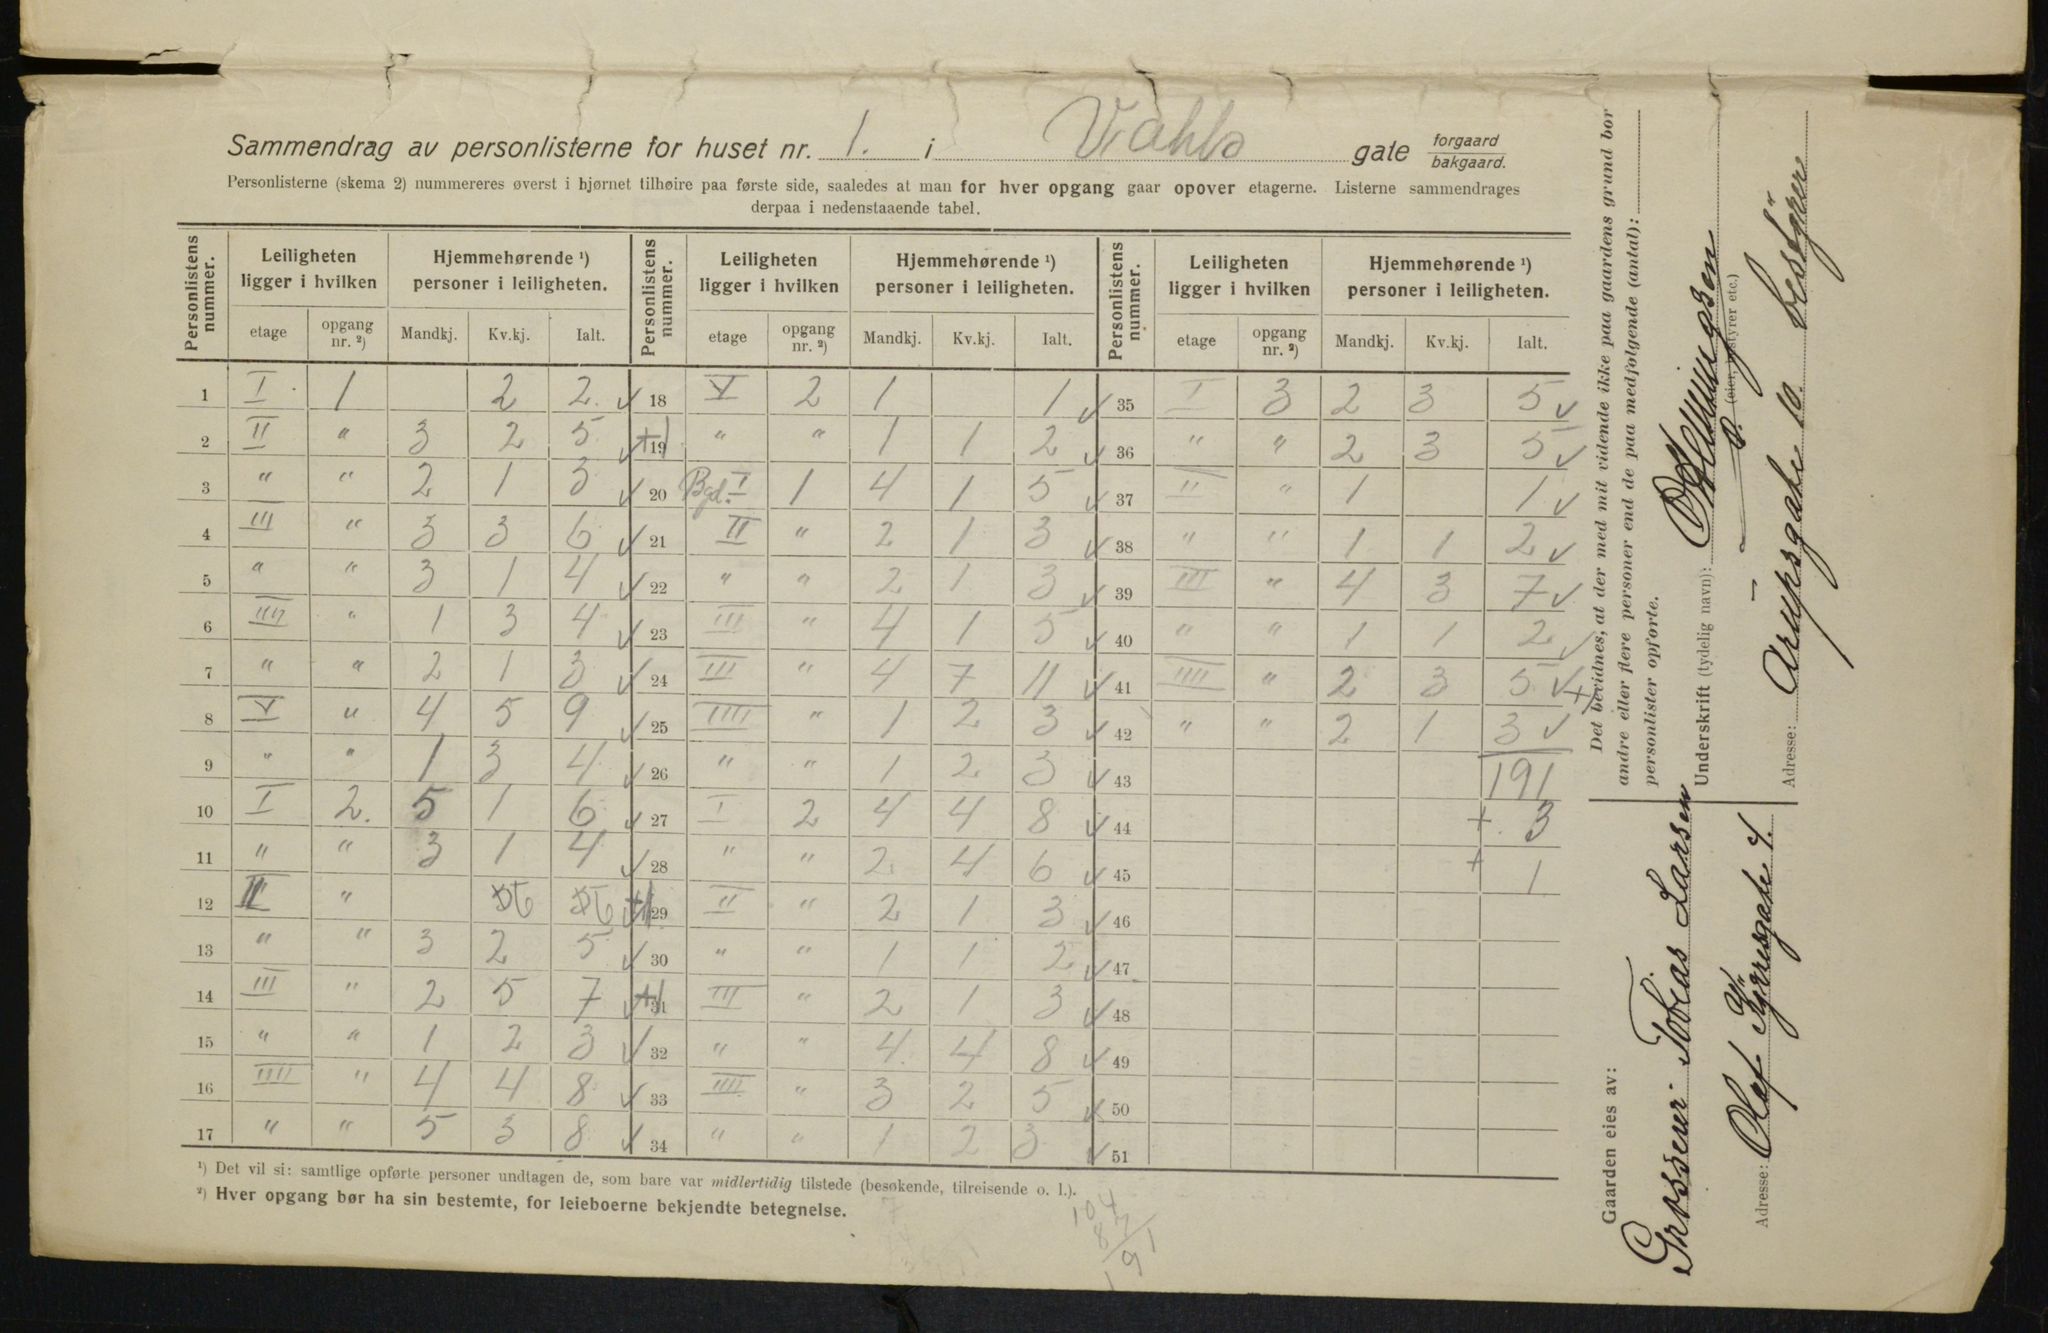 Sammendrag av personlisterne for huset nr. 1. i Vahls gate forgaard bakgaard.
Personlisterne (skema 2) nummereres øverst i hjørnet tilhøire paa første side, saaledes at man for hver opgang gaar opover etagerne. Listerne sammendrages
derpaa i nedenstaaende tabel.
Personlistens nummer. Leiligheten ligger i hvilken etage opgang nr. ²) Hjemmehørende ¹) personer i leiligheten. Mandkj. Kv.kj. Ialt.
Personlistens nummer. Leiligheten ligger i hvilken etage opgang nr. ²) Hjemmehørende ¹) personer i leiligheten. Mandkj. Kv.kj. Ialt.
Personlistens nummer. Leiligheten ligger i hvilken etage opgang nr. ²) Hjemmehørende ¹) personer i leiligheten. Mandkj. Kv.kj. Ialt.
1 I 1 2 2 ✓ 18 V 2 1 1 ✓ 35 I 3 2 3 5 ✓
2 II " 3 2 5 ✓ +1 19 " " 1 1 2 ✓ 36 " " 2 3 5 ✓
3 " " 2 1 3 ✓ 20 Bgd. I 1 4 1 5 ✓ 37 II " 1 1 ✓
4 III " 3 3 6 ✓ 21 II " 2 1 3 ✓ 38 " " 1 1 2 ✓
5 " " 3 1 4 ✓ 22 " " 2 1 3 ✓ 39 III " 4 3 7 ✓
6 IIII " 1 3 4 ✓ 23 III " 4 1 5 ✓ 40 " " 1 1 2 ✓
7 " " 2 1 3 ✓ 24 III " 4 7 11 ✓ 41 IIII " 2 3 5 ✓ +
8 V " 4 5 9 ✓ 25 IIII " 1 2 3 ✓ 42 " " 2 1 3 ✓
9 " " 1 3 4 ✓ 26 " " 1 2 3 ✓ 43 191
10 I 2. 5 1 6 ✓ 27 I 2 4 4 8 ✓ 44 + 3
11 " " 3 1 4 ✓ 28 " " 2 4 6 ✓ 45 + 1
12 II " 6 6 ✓ +1 29 II " 2 1 3 ✓ 46
13 " " 3 2 5 ✓ 30 " " 1 1 2 ✓ 47
14 III " 2 5 7 ✓ +1 31 III " 2 1 3 ✓ 48
15 " " 1 2 3 ✓ 32 " " 4 4 8 ✓ 49
16 IIII " 4 4 8 ✓ 33 IIII " 3 2 5 ✓ 50
17 " " 5 3 8 ✓ 34 " " 1 2 3 ✓ 51
¹) Det vil si: samtlige opførte personer undtagen de, som bare var midlertidig tilstede (besøkende, tilreisende o. l.).
²) Hver opgang bør ha sin bestemte, for leieboerne bekjendte betegnelse.
104
87
191
Det bevidnes, at der med mit vidende ikke paa gaardens grund bor
andre eller flere personer end de paa medfølgende (antal):
personlister opførte.
Underskrift (tydelig navn): O. Hemmingsen
(eier, bestyrer etc.)
Adresse: Arupsgate 10. bestyrer
Gaarden eies av:
Grosserer Tobias Larsen
Adresse: Olaf Kyrresgate 4.